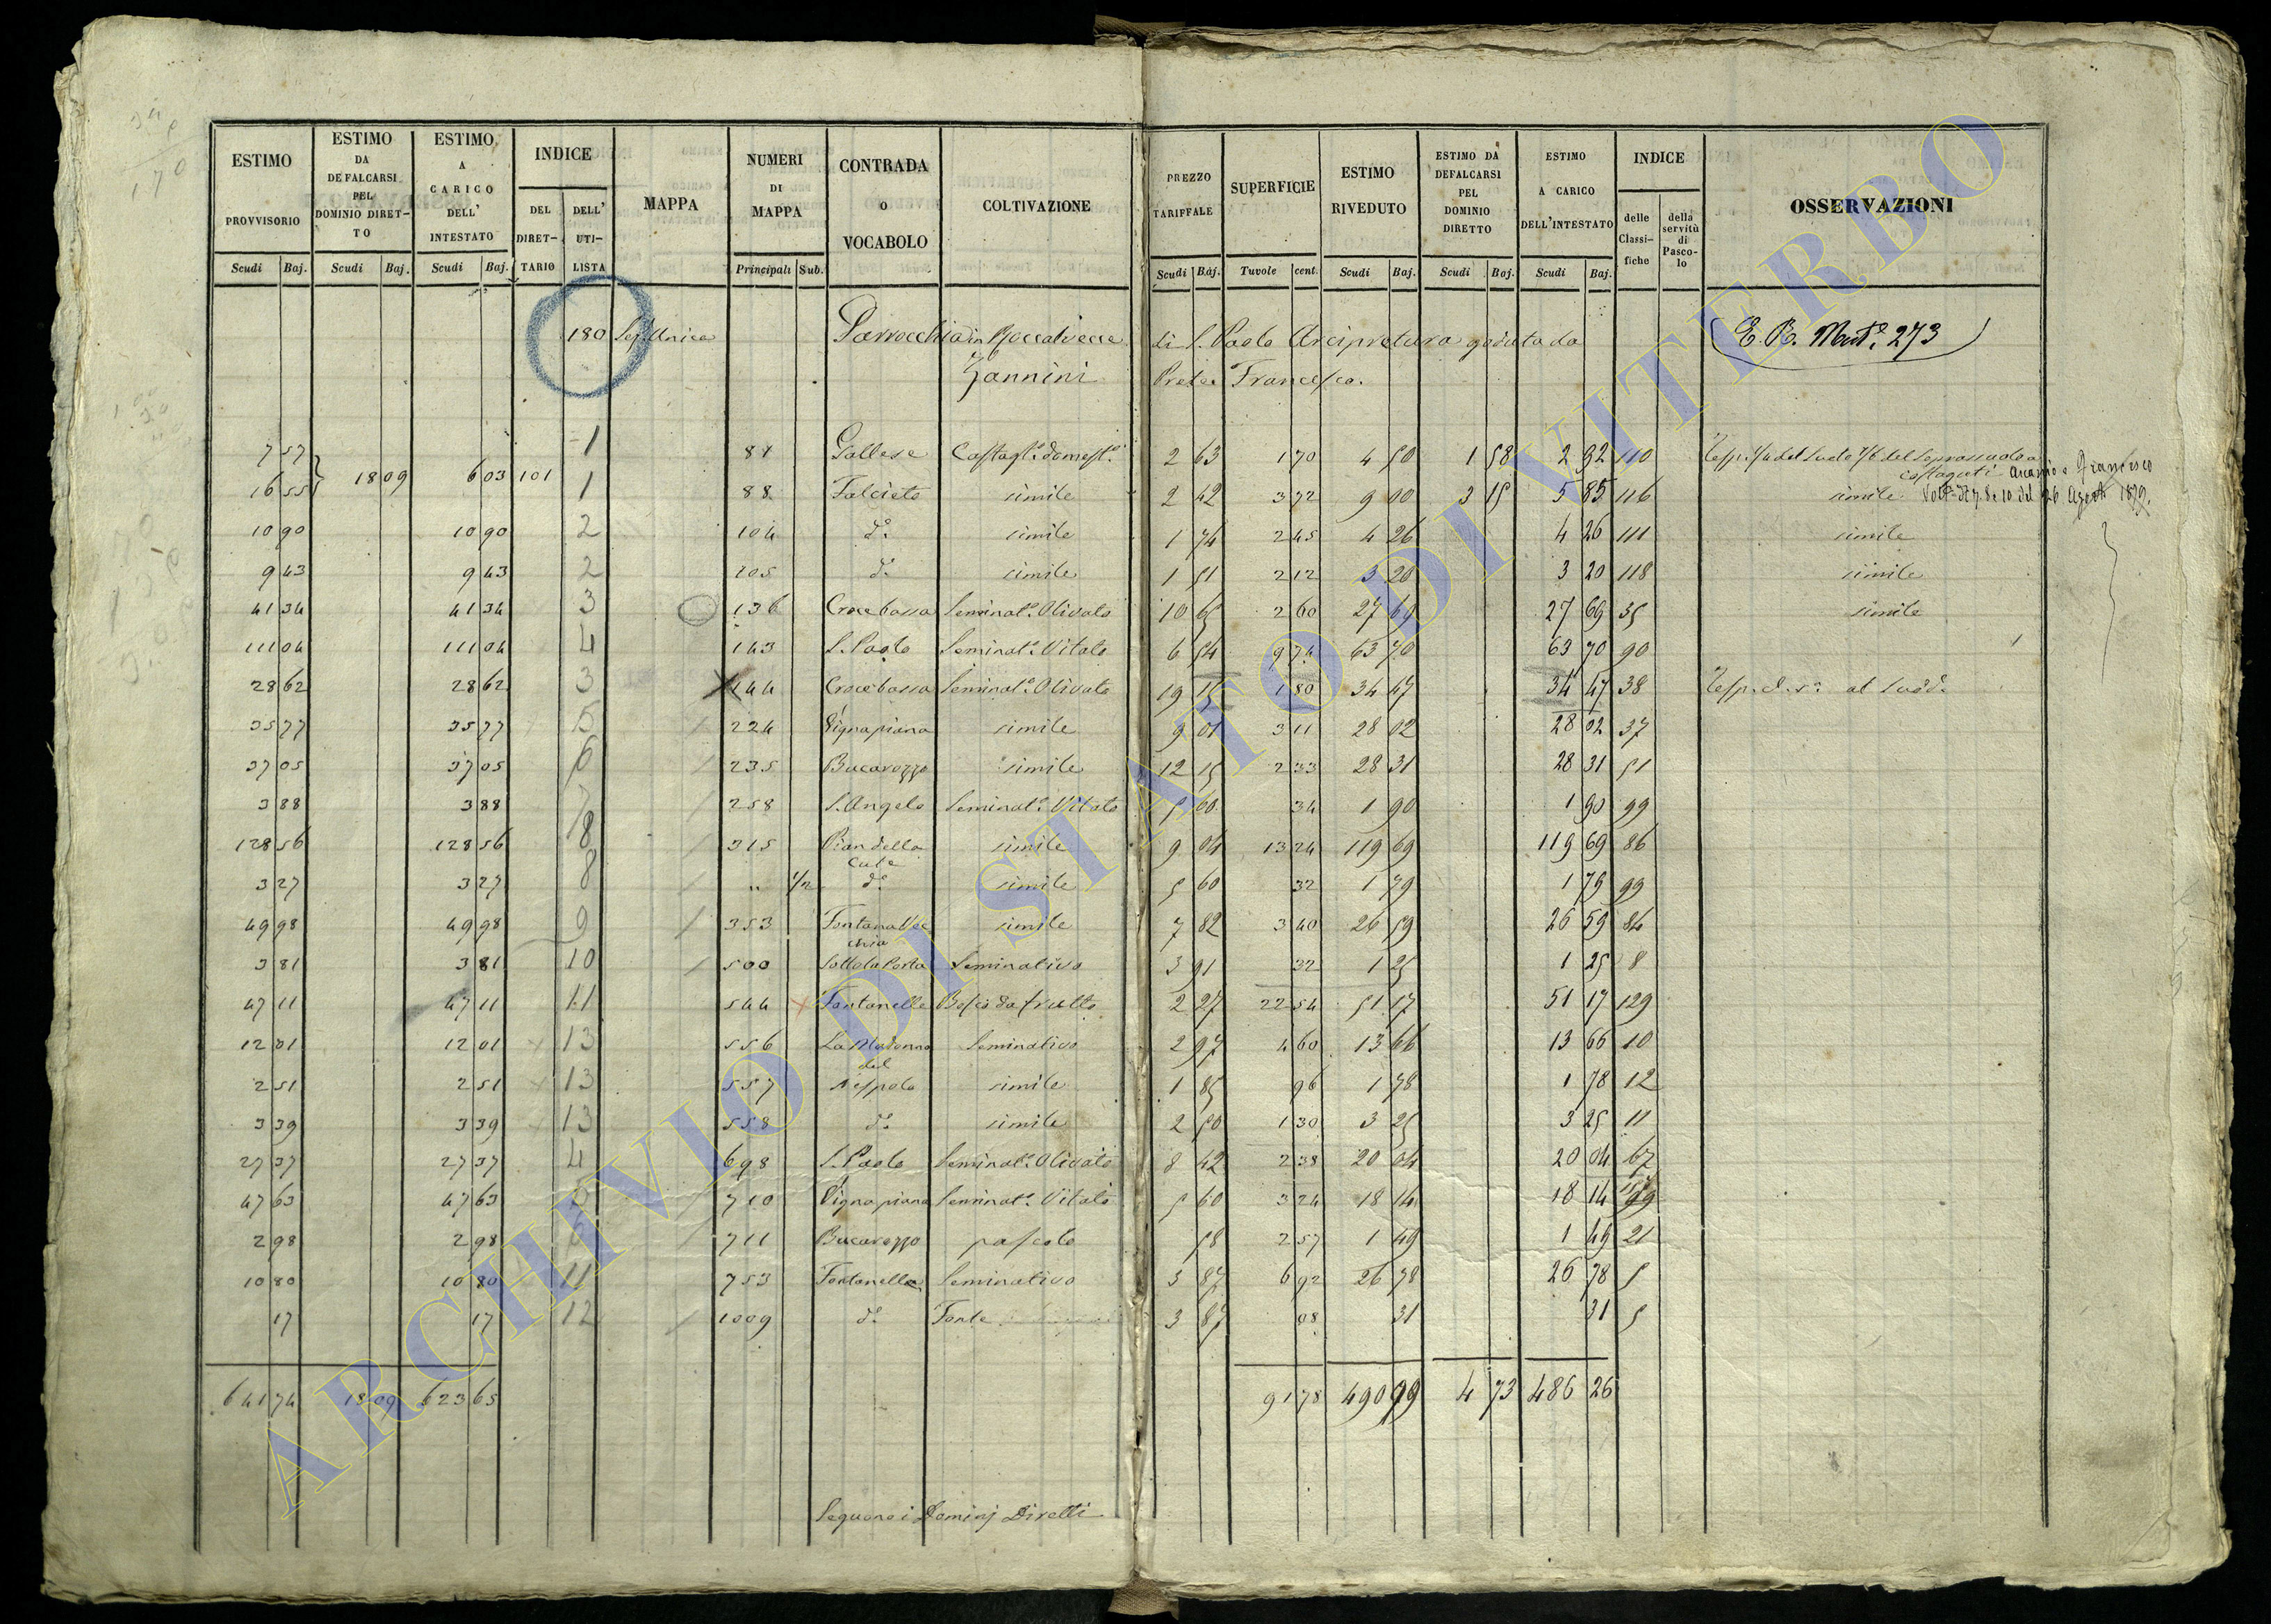 ESTIMO PROVVISORIO Scudi Baj. ESTIMO DA DEFALCARSI PEL DOMINIO DIRET-TO Scudi Baj. ESTIMO A CARICO DELL' INTESTATO Scudi Baj. INDICE DEL DIRET-TARIO DELL' UTI-LISTA MAPPA NUMERI DI MAPPA Principali Sub. CONTRADA O VOCABOLO COLTIVAZIONE PREZZO TARIFFALE Scudi Baj. SUPERFICIE Tavole cent. ESTIMO RIVEDUTO Scudi Baj. ESTIMO DA DEFALCARSI PEL DOMINIO DIRETTO Scudi Baj. ESTIMO A CARICO DELL'INTESTATO Scudi Baj. INDICE delle Classi-fiche della servitù di Pasco-lo OSSERVAZIONI
180 Sez. Unica Parrocchia in Roccalvecce di S. Paolo Arcipretura goduta da E. R. Mut.e 273
Zannini Prete Francesco.
7 57 1 Gallese Castagt.o domest.o 2 63 1 70 4 50 1 58 2 92 110
18 09 6 03 101
16 55 1 88 Falcieto simile 2 42 3 72 9 00 3 15 5 85 116 simile
10 90 10 90 2 104 d.o simile 1 74 2 45 4 26 4 26 111 simile
9 43 9 43 2 105 d.o simile 1 51 2 12 3 20 3 20 118 simile
41 34 41 34 3 136 Crocebassa Seminat.o Olivato 10 65 2 60 27 69 27 69 35 simile
111 04 111 04 4 143 S. Paolo Seminat.o Vitato 6 54 9 74 63 70 63 70 90
28 62 28 62 3 144 Crocebassa Seminat.o Olivato 19 15 1 80 34 47 34 47 38
35 77 35 77 5 224 Vigna piana simile 9 01 3 11 28 02 28 02 37
37 05 37 05 6 235 Bucarozzo simile 12 15 2 33 28 31 28 31 51
3 88 3 88 7 258 S. Angelo Seminat.o Vitato 5 60 34 1 90 1 90 99
128 56 128 56 8 315 Pian della simile 9 04 13 24 119 69 119 69 86
3 27 3 27 8 " 1/2 d.o simile 5 60 32 1 79 1 79 99
49 98 49 98 9 353 Fontana Vec simile 7 82 3 40 26 59 26 59 84
chia
3 81 3 81 10 500 Sotto la Porta Seminativo 3 91 32 1 25 1 25 8
47 11 47 11 11 544 Fontanelle Bosco da frutto 2 27 22 54 51 17 51 17 129
12 01 12 01 13 556 La Madonna Seminativo 2 97 4 60 13 66 13 66 10
del
2 51 2 51 13 557 Nespolo simile 1 85 96 1 78 1 78 12
3 39 3 39 13 558 d.o simile 2 50 1 30 3 25 3 25 11
27 37 27 37 4 698 S. Paolo Seminat.o Olivato 8 42 2 38 20 04 20 04 67
47 63 47 63 5 710 Vigna piana Seminat.o Vitato 5 60 3 24 18 14 18 14
2 98 2 98 6 711 Bucarozzo pascolo 58 2 57 1 49 1 49 21
10 80 10 80 11 753 Fontanelle Seminativo 3 87 6 92 26 78 26 78 5
17 17 12 1009 d.o Fonte 3 87 08 31 31 5
641 74 18 09 623 65 91 78 490 99 4 73 486 26
Seguono i Dominj Diretti
ARCHIVIO DI STATO DI VITERBO